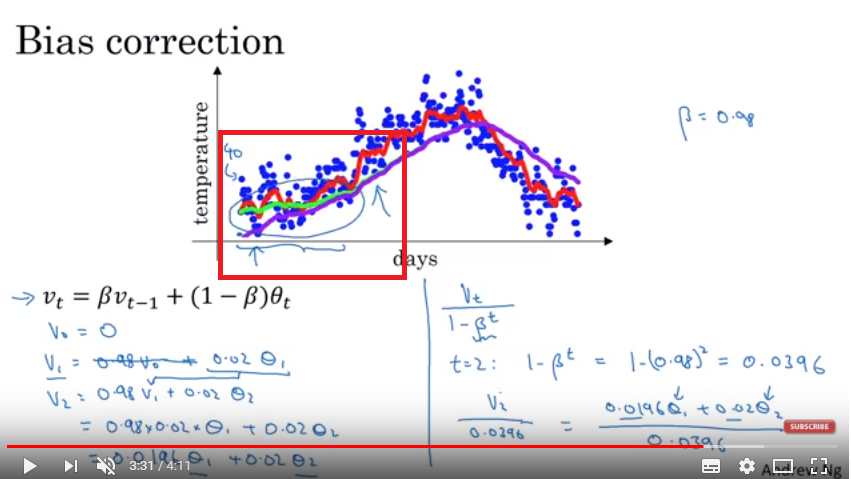 Bias correction
temperature
40
days
β = 0.98
→ vₜ = βvₜ₋₁ + (1 − β)θₜ
V₀ = 0
V₁ = 0.98 V₀ + 0.02 θ₁
V₂ = 0.98 V₁ + 0.02 θ₂
= 0.98 x 0.02 x θ₁ + 0.02 θ₂
= 0.0196 θ₁ + 0.02 θ₂
Vₜ
1 - βᵗ
t=2: 1 - βᵗ = 1 - (0.98)² = 0.0396
V₂
0.0396
=
0.0196θ₁ + 0.02θ₂
0.0396
SUBSCRIBE
3:31 / 4:11
Andrew Ng